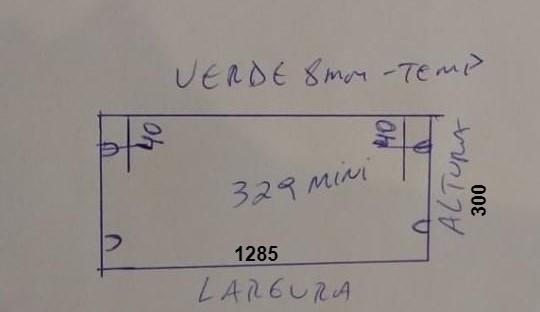 VERDE 8mm - TEMP
40
40
329 MINI
1285
ALTURA
300
LARGURA